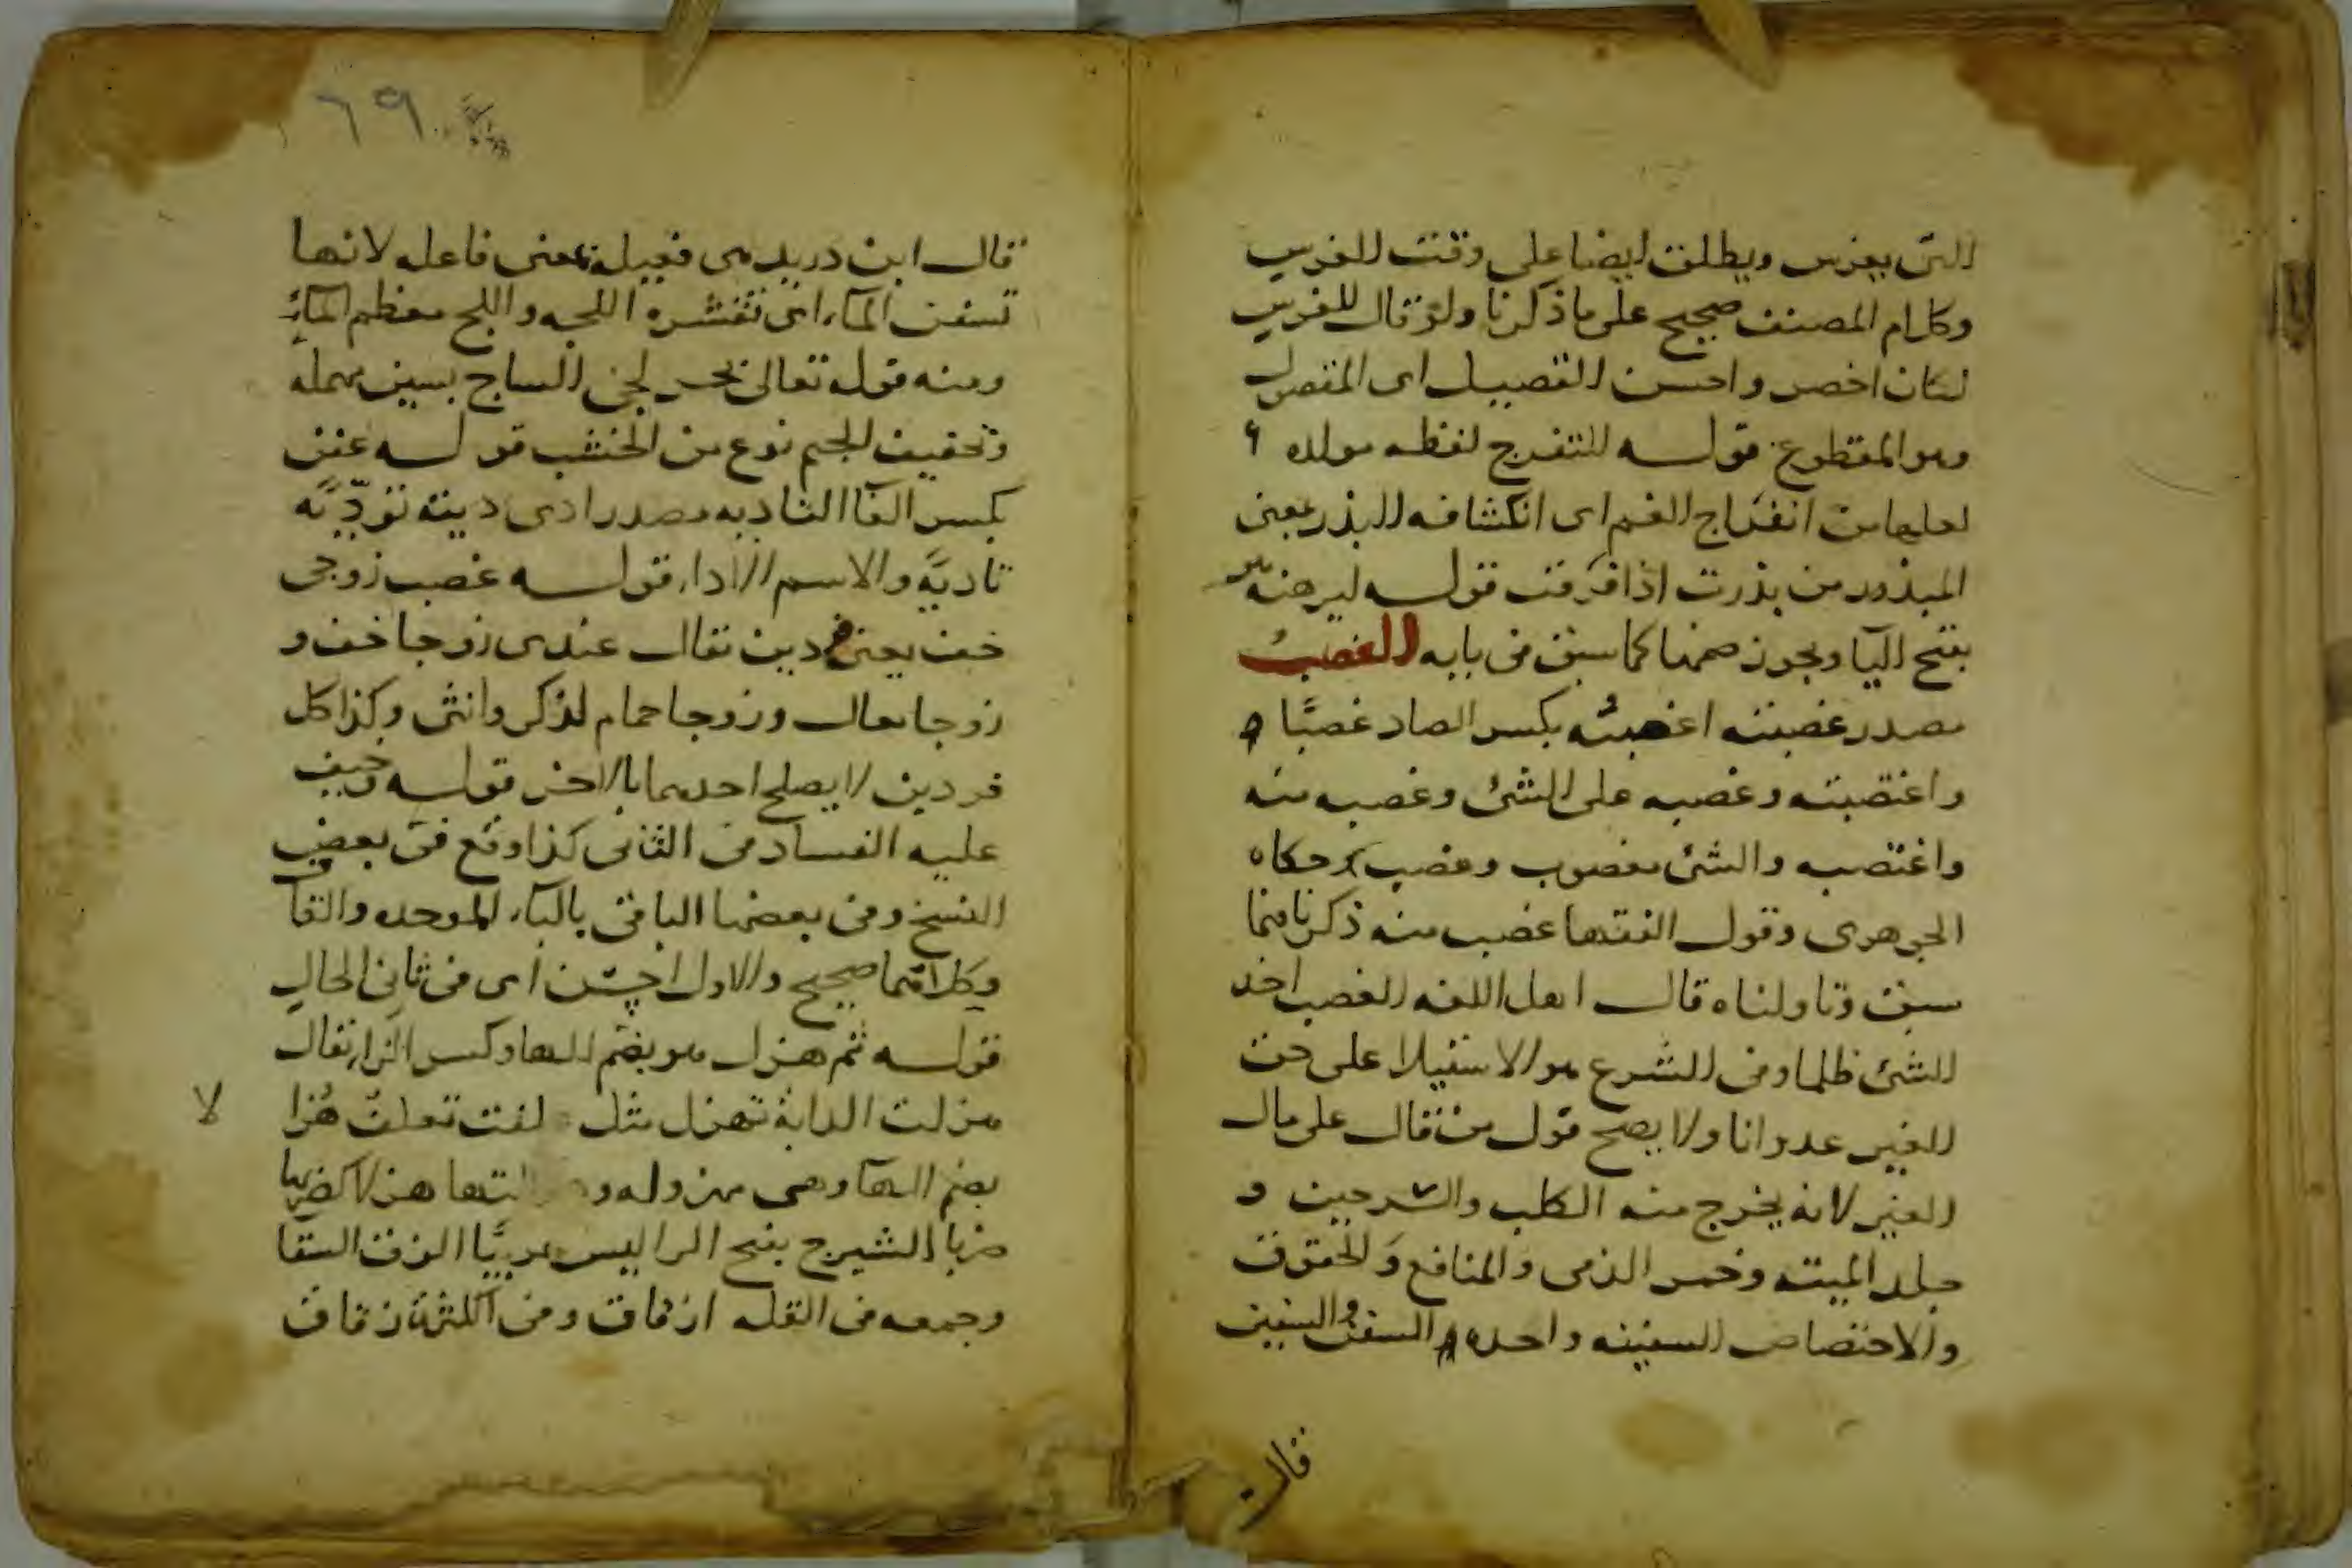 التى يغرس ويطلق ايضا على وقت الغرس
وكلام المصنف صحيح على ما ذكرنا ولو قال للغرس
لكان اخصر واحسن القصيل اى المقصول
وهو المقطوع قوله للتفرج لفظه مولده
لعلها من انفراج الغم اى انكشافه البذر بمعنى
المبذور من بذرت اذا فرقت قوله ليرهنه
بفتح اليا ويجوز ضمها كما سبق فى بابه الغصب
مصدر غصبته اغصبُه بكسر الصاد غصبًا
واغتصبته وغصبه على الشئ وغصبه منه
واغتصبه والشئ مغصوب وغصب حكاه
الجوهرى وقول الفقها غصب منه ذكرنا فيما
سبق وتاولناه قال اهل اللغه الغصب اخذ
الشئ ظلما وفى الشرع هو الاستيلا على حق
الغير عدوانا ولا يصح قول من قال على مال
الغير لانه يخرج منه الكلب والسرجين و
جلد الميته وخمر الذمى والمنافع والحقوق
والاختصاص السفينه واحده السفن والسفين
قال
٦٩
قال ابن دريد هى فعيلة بمعنى فاعله لانها
تسفن الماء اى تقشره اللجه واللج معظم الماء
ومنه قوله تعالى بحر لجى الساج بسين مهمله
وتخفيف الجيم نوع من الخشب قوله عفن
بكسر الفا التاديه مصدر ادى دينه تودّيه
تاديةً والاسم الادا، قوله غصب زوجى
خف يعنى فردين تقال عندى زوجا خف و
زوجا نعال وزوجا حمام لذكر وانثى وكذا كل
فردين لا يصلح احدهما بالاخر قوله وخيف
عليه الفساد فى الثانى كذا وقع فى بعض
النسخ وفى بعضها الباقى بالباء الموحده والقاف
وكلاهما صحيح والاول احسن اى فى ثانى الحال
قوله ثم هزل هو بضم الها وكسر الزا يقال
هزلت الدابة تهزل مثل لفت تعلف هزا
لا
بضم الها وهى مهزوله و هزلا كضربها
ضربا الشيرج بفتح الرا ليس عربيًّا الزق السقا
وجمعه فى القله ازقاق وفى الكثرة زقاق